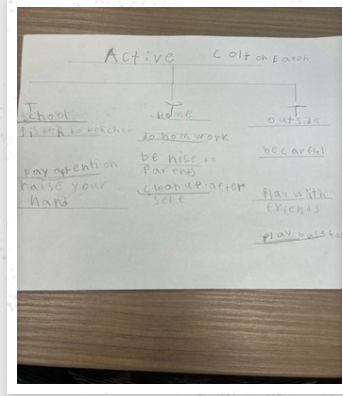 Active
School
listen to teacher
pay attention
raise your
hand
Home
do hom work
be nice to
Parents
clean up after
self
outside
be carful
Play with
friends
play